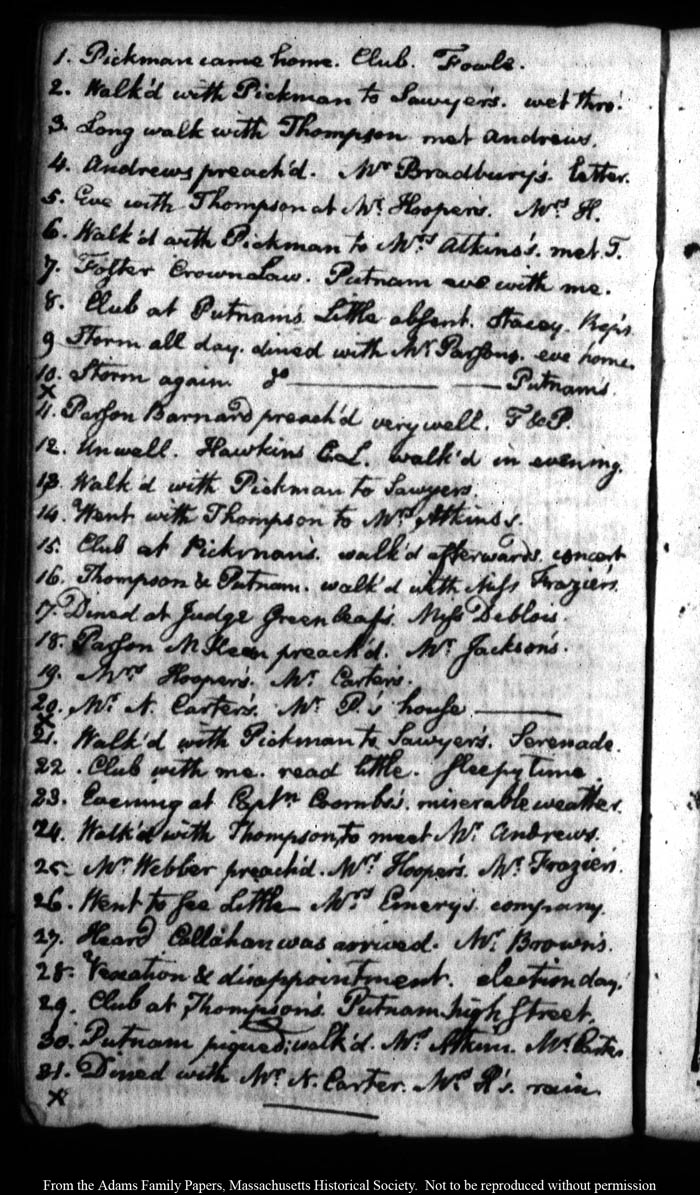 1. Pickman came home. Club. Fowle.
2. Walk'd with Pickman to Sawyer's. wet thro'.
3. Long walk with Thompson met Andrews.
4. Andrews preach'd. Mr Bradbury's. letter.
5. Eve with Thompson at Mr Hooper's. Mrs H.
6. Walk'd with Pickman to Mrs Atkins's. met T.
7. Foster Crown Law. Putnam eve with me.
8. Club at Putnam's. Little absent. Stacey. Rep's
9 Storm all day. dined with Mr Parsons. eve home.
10. Storm again. do Putnam's.
X
11. Parson Barnard preach'd very well. T & P.
12. Unwell. Hawkins C.L. walk'd in evening.
13. Walk'd with Pickman to Sawyers.
14. Went with Thompson to Mrs Atkins's.
15. Club at Pickman's. walk'd afterwards. concert
16. Thompson & Putnam. walk'd with Miss Frazier's.
17. Dined at Judge Greenleaf's. Miss Deblois.
18. Parson McKeen preach'd. Mr Jackson's.
19. Mrs Hooper's. Mr Carter's.
20. Mr N. Carter's. Mr P.'s house
X
21. Walk'd with Pickman to Sawyer's. Serenade.
22. Club with me. read little. sleepy time.
23. Evening at Captn Coombs's. miserable weather.
24. Walk'd with Thompson, to meet Mr Andrews.
25. Mr Webber preach'd. Mrs Hooper's. Mr Frazier's.
26. Went to see Little Mrs Emery's. company.
27. Heard Callahan was arrived. Mr Brown's.
28. Vexation & disappointment. election day.
29. Club at Thompson's. Putnam. high Street.
30. Putnam piqued; walk'd. Mrs Atkins. Mr Carter
31. Dined with Mr N. Carter. Mrs H's. rain.
X
From the Adams Family Papers, Massachusetts Historical Society. Not to be reproduced without permission